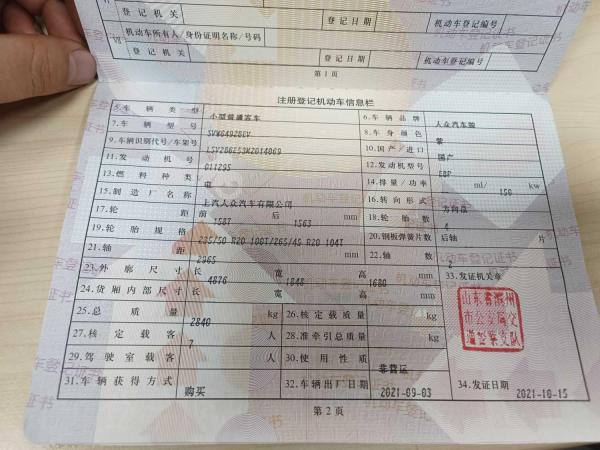 登记机关 登记日期 机动车登记编号
VII 机动车所有人/身份证明名称/号码
登记机关 登记日期 机动车登记编号
第1页
注册登记机动车信息栏
5.车辆类型 小型普通客车 6.车辆品牌 大众汽车牌
7.车辆型号 8.车身颜色
9.车辆识别代号/车架号 10.国产/进口 国产
11.发动机号 011295 12.发动机型号 EBP
13.燃料种类 电 14.排量/功率 ml/ 150 kw
15.制造厂名称 上汽大众汽车有限公司 16.转向形式 方向盘
17.轮距 前 1587 后 1563 mm 18.轮胎数 4
19.轮胎规格 235/50 R20 100T/265/45 R20 104T 20.钢板弹簧片数 后轴 片
21.轴距 2965 mm 22.轴数
23.外廓尺寸 长 4876 宽 1848 高 1680 mm 33.发证机关章
24.货厢内部尺寸 长 宽 高 mm
25.总质量 2840 kg 26.核定载质量 kg
27.核定载客 7 人 28.准牵引总质量 kg
山东省滨州
市公安局交
通警察支队
29.驾驶室载客 人 30.使用性质 非营运
31.车辆获得方式 购买 32.车辆出厂日期 2021-09-03 34.发证日期 2021-10-15
第2页